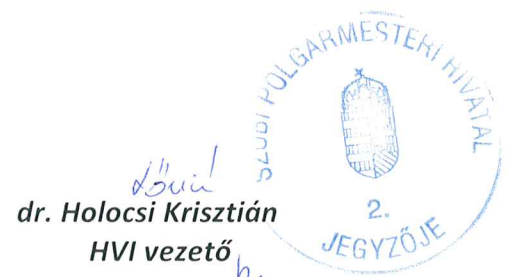 SZOBI POLGÁRMESTERI HIVATAL
2.
JEGYZŐJE
dr. Holocsi Krisztián
HVI vezető
h.